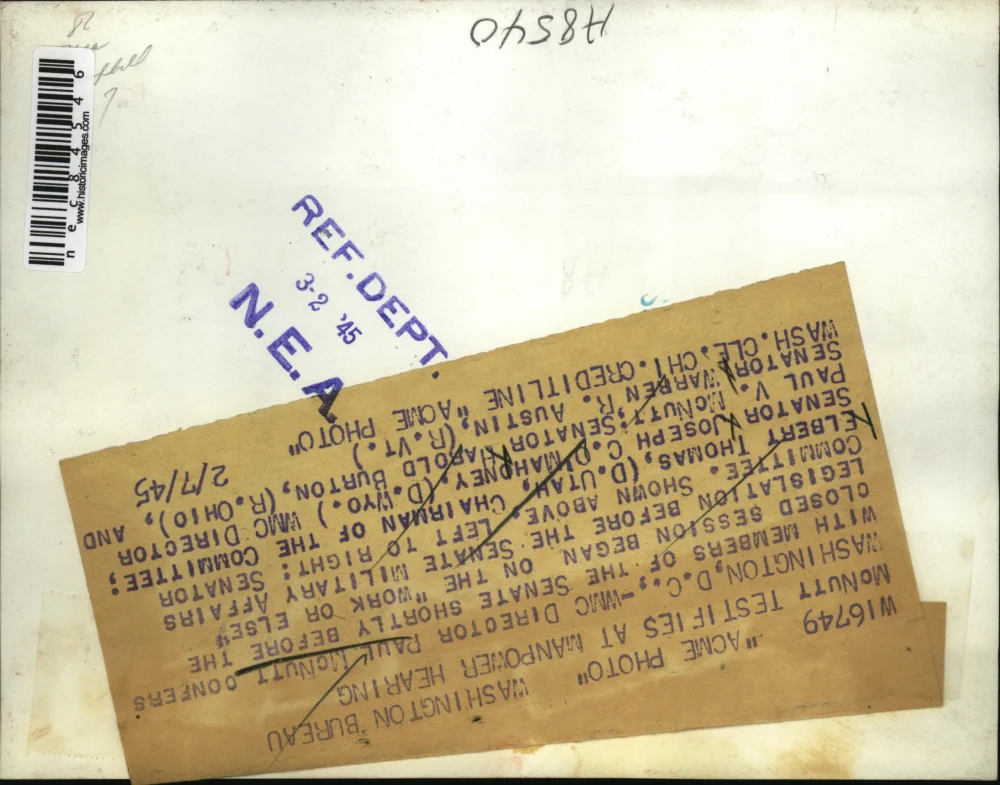 H8540
n e c 8 4 5 4 6
www.historicimages.com
REF. DEPT.
3-2 '45
N.E.A.
"ACME PHOTO" WASHINGTON BUREAU
W16749
McNUTT TESTIFIES AT MANPOWER HEARING
WASHINGTON, D.C., --WMC DIRECTOR PAUL McNUTT CONFERS
WITH MEMBERS OF THE SENATE SHORTLY BEFORE THE
CLOSED SESSION BEGAN ON THE "WORK OR ELSE"
LEGISLATION BEFORE THE SENATE MILITARY AFFAIRS
COMMITTEE. SHOWN ABOVE, LEFT TO RIGHT: SENATOR
ELBERT THOMAS, (D. UTAH, CHAIRMAN OF THE COMMITTEE;
SENATOR JOSEPH C. O'MAHONEY, (D. WYO.) WMC DIRECTOR
PAUL V. McNUTT; SENATOR HAROLD BURTON, (R. OHIO), AND
SENATOR WARREN R. AUSTIN, (R. VT.)
WASH. CLE. CHI. CREDITLINE "ACME PHOTO" 2/7/45